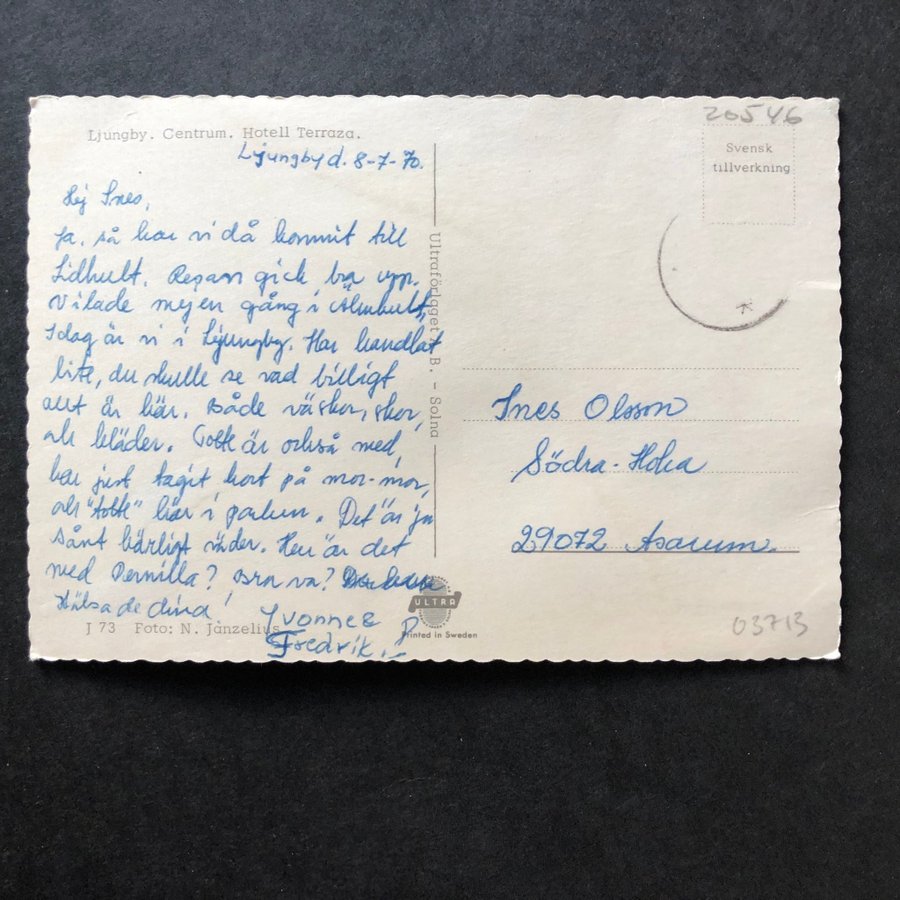 Ljungby. Centrum. Hotell Terraza.
Ljungby d. 8-7-70.
Hej Ines,
Ja, så har vi då kommit till
Lidhult. Resan gick bra upp.
Vilade mej en gång i Älmhult,
Idag är vi i Ljungby. Har handlat
lite, du skulle se vad billigt
allt är här. Både väskor, skor,
och kläder. Totte är också med,
har just tagit kort på mor-mor,
och "totte" här i parken. Det är ju
sånt härligt väder. Hur är det
med Pernilla? Bra va?
Hälsa de dina!
Yvonne
Fredrik.
J 73 Foto: N. Janzelius
Ultraförlaget A. B. - Solna
ULTRA
Printed in Sweden
20546
Svensk
tillverkning
Ines Olsson
Södra-Hoka
29072 Asarum.
03713